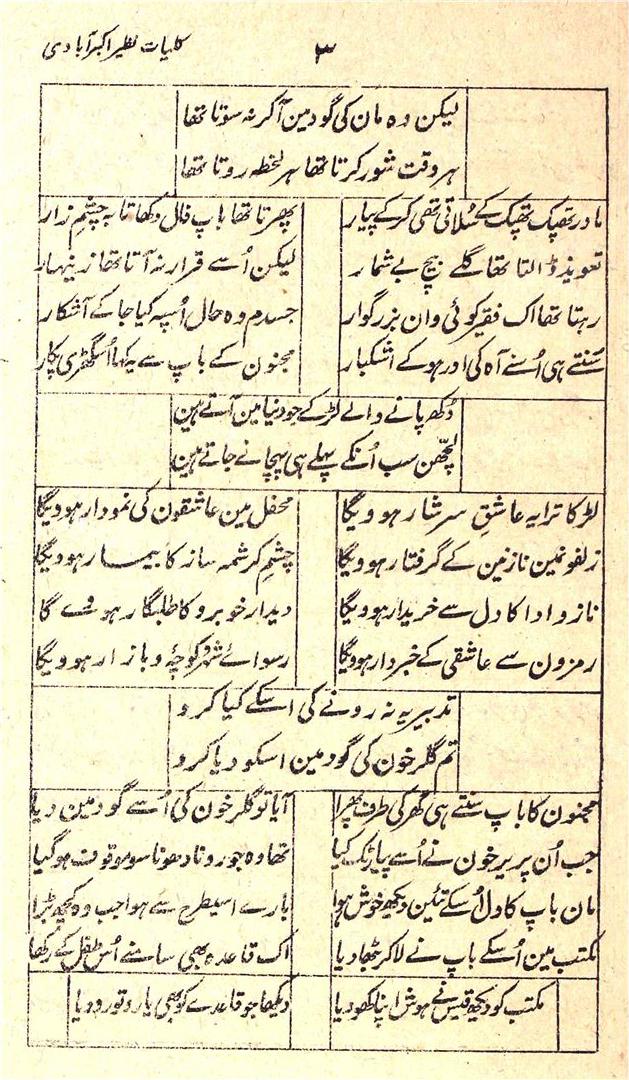 کلیات نظیر اکبرآبادی
۳
لیکن وہ مان کی گود مین آ کر نہ سوتا تھا
ہر وقت شور کرتا تھا ہر لخطہ روتا تھا
مادر تھپک تھپک کے سُلاتی تھی کر کے پیار
پھرتا تھا باپ فال دکھاتا بہ چشمِ زار
تعویذ ڈالتا تھا گلے بیچ بے شمار
لیکن اُسے قرار نہ آتا تھا زینہار
رہتا تھا اک فقیر کوئی وان بزرگوار
جسدم وہ حال اُسپہ کیا جا کے آشکار
سُنتے ہی اُسنے آہ کی اور ہو کے اشکبار
مجنون کے باپ سے یہ کہا اُسگھڑی پکار
دُکھ پانے والے لڑکے جو دنیا مین آتے ہین
لچھّن سب اُنکے پہلے ہی پہچانے جاتے ہین
لڑکا ترا یہ عاشقِ سرشار ہوویگا
محفل مین عاشقون کی نمودار ہوویگا
زلفونمین نازنین کے گرفتار ہوویگا
چشمِ کرشمہ ساز کا بیمار ہوویگا
ناز و ادا کا دل سے خریدار ہوویگا
دیدار خوبرو کا طلبگار ہووے گا
رمزون سے عاشقی کے خبردار ہوویگا
رسوائے شہر و کوچۂ و بازار ہوویگا
تدبیر یہ نہ رونے کی اسکے کیا کرو
تم گلرخون کی گود مین اسکو دیا کرو
مجنون کا باپ سنتے ہی گھر کی طرف پھرا
آیا تو گلرخون کی اُسے گود مین دیا
جب اُن پریرخون نے اُسے پیار ٹک کیا
تھا وہ جو رونا دھونا سو موقوف ہو گیا
مان باپ کا دل اُسکے تئین دیکھ خوش ہوا
بارے اسیطرح سے ہوا جب وہ کچھ بڑا
مکتب مین اُسکے باپ نے لا کر بٹھا دیا
اک قاعدہ بھی سامنے اُس طفل کے رکھا
مکتب کو دیکھ قیس نے ہوش اپنا کھو دیا
دیکھا جو قاعدے کو بھی یارو تو رو دیا